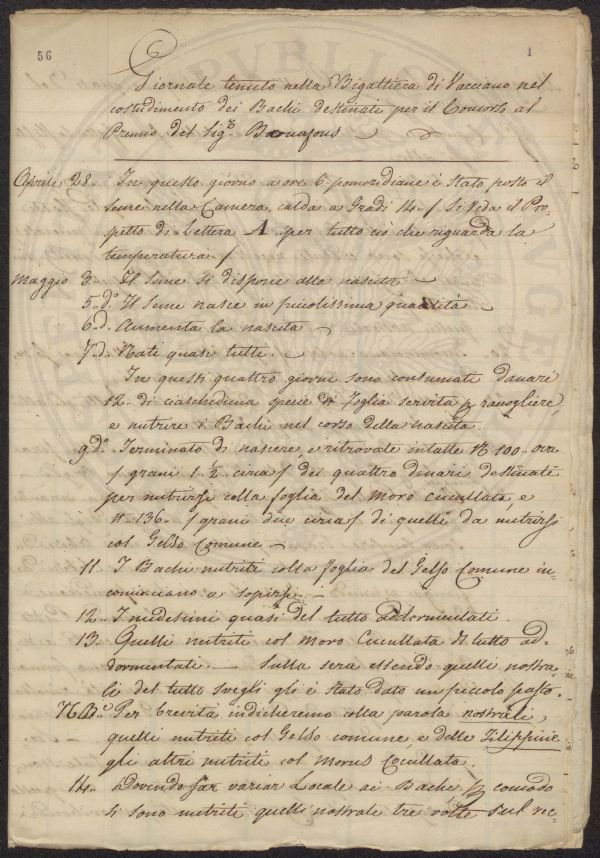 56
1
Giornale tenuto nella Bigattiera di Vacciano nel
costudimento dei Bachi destinati per il Concorso al
Premio del Sig.r Bonafous
Aprile 28. In questo giorno a ore 6 pomeridiane è stato posto il
seme nella Camera calda a Gradi 14. / Si Veda il Pro-
spetto di Lettera A per tutto ciò che riguarda la
temperatura /
Maggio 3. Il Seme si dispone alla nascita
5. d.o Il Seme nasce in piccolissima quantità
6. d. Aumenta la nascita
7. d. Nati quasi tutti.
In questi quattro giorni sono consumati danari
12. di ciascheduna specie di foglia servita p raccogliere,
e nutrire i Bachi nel corso della nascita.
9 d.o Terminato di nascere, e ritrovate intatte N 100. ova
/ grani 1 ½ circa / dei quattro danari destinati
per nutrirsi colla foglia del Moro cucullata, e
N. 136. / grani due circa / di quelli da nutrirsi
col Gelso Comune
11. I Bachi nutriti colla foglia del Gelso Comune in-
cominciano a sopirsi.
12. I medesimi quasi del tutto addormentati.
13. Quelli nutriti col Moro Cucullata di tutto ad-
dormentati. — Sulla sera essendo quelli nostra-
li del tutto svegli gli è stato dato un piccolo pasto.
N.B. Per brevità indicheremo colla parola nostrali,
quelli nutriti col Gelso comune, e delle Filippine
gli altri nutriti col Morus Cucullata.
14. Dovendo far variar Locale ai Bachi p comodo
si sono nutriti quelli nostrale tre volte sul rec-